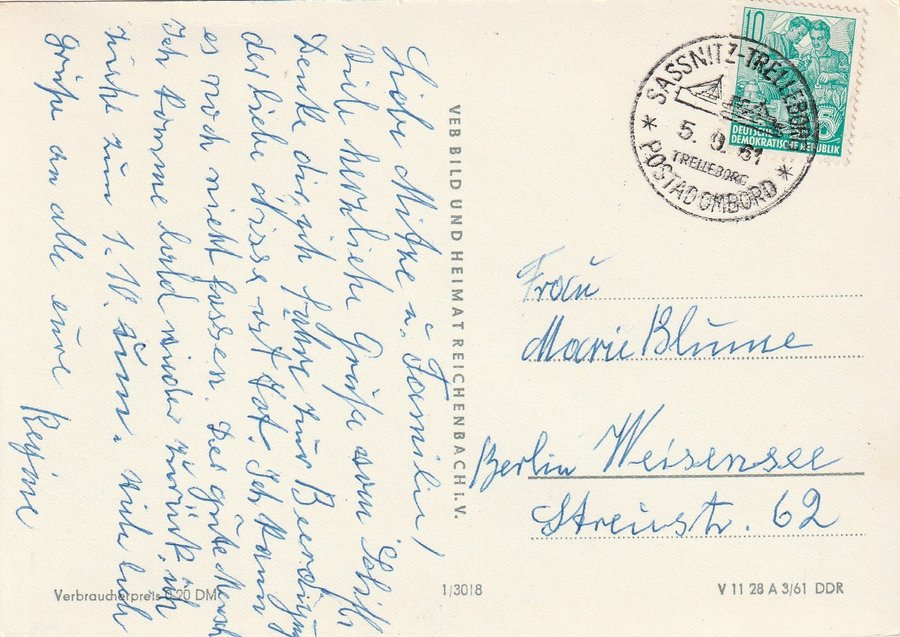 Liebe Mitze u. Familie!
Viele herzliche Grüße vom Schiff.
Denke dir, ich fahre zur Beerdigung
der liebe Nisse ist tot. Ich kann
es noch nicht fassen. Der gute Mensch
Ich komme bald wieder zurück, ich
zum 1. IV. viele liebe
Grüße an alle eure
Regine
VEB BILD UND HEIMAT REICHENBACH i. V.
10
5
DEUTSCHE
DEMOKRATISCHE REPUBLIK
SASSNITZ-TRELLEBORG
5. 9. 61
TRELLEBORG
* POSTAD OMBORD *
Frau
Marie Blume
Berlin Weisensee
Streustr. 62
Verbraucherpreis 0,20 DM
1/3018
V 11 28 A 3/61 DDR